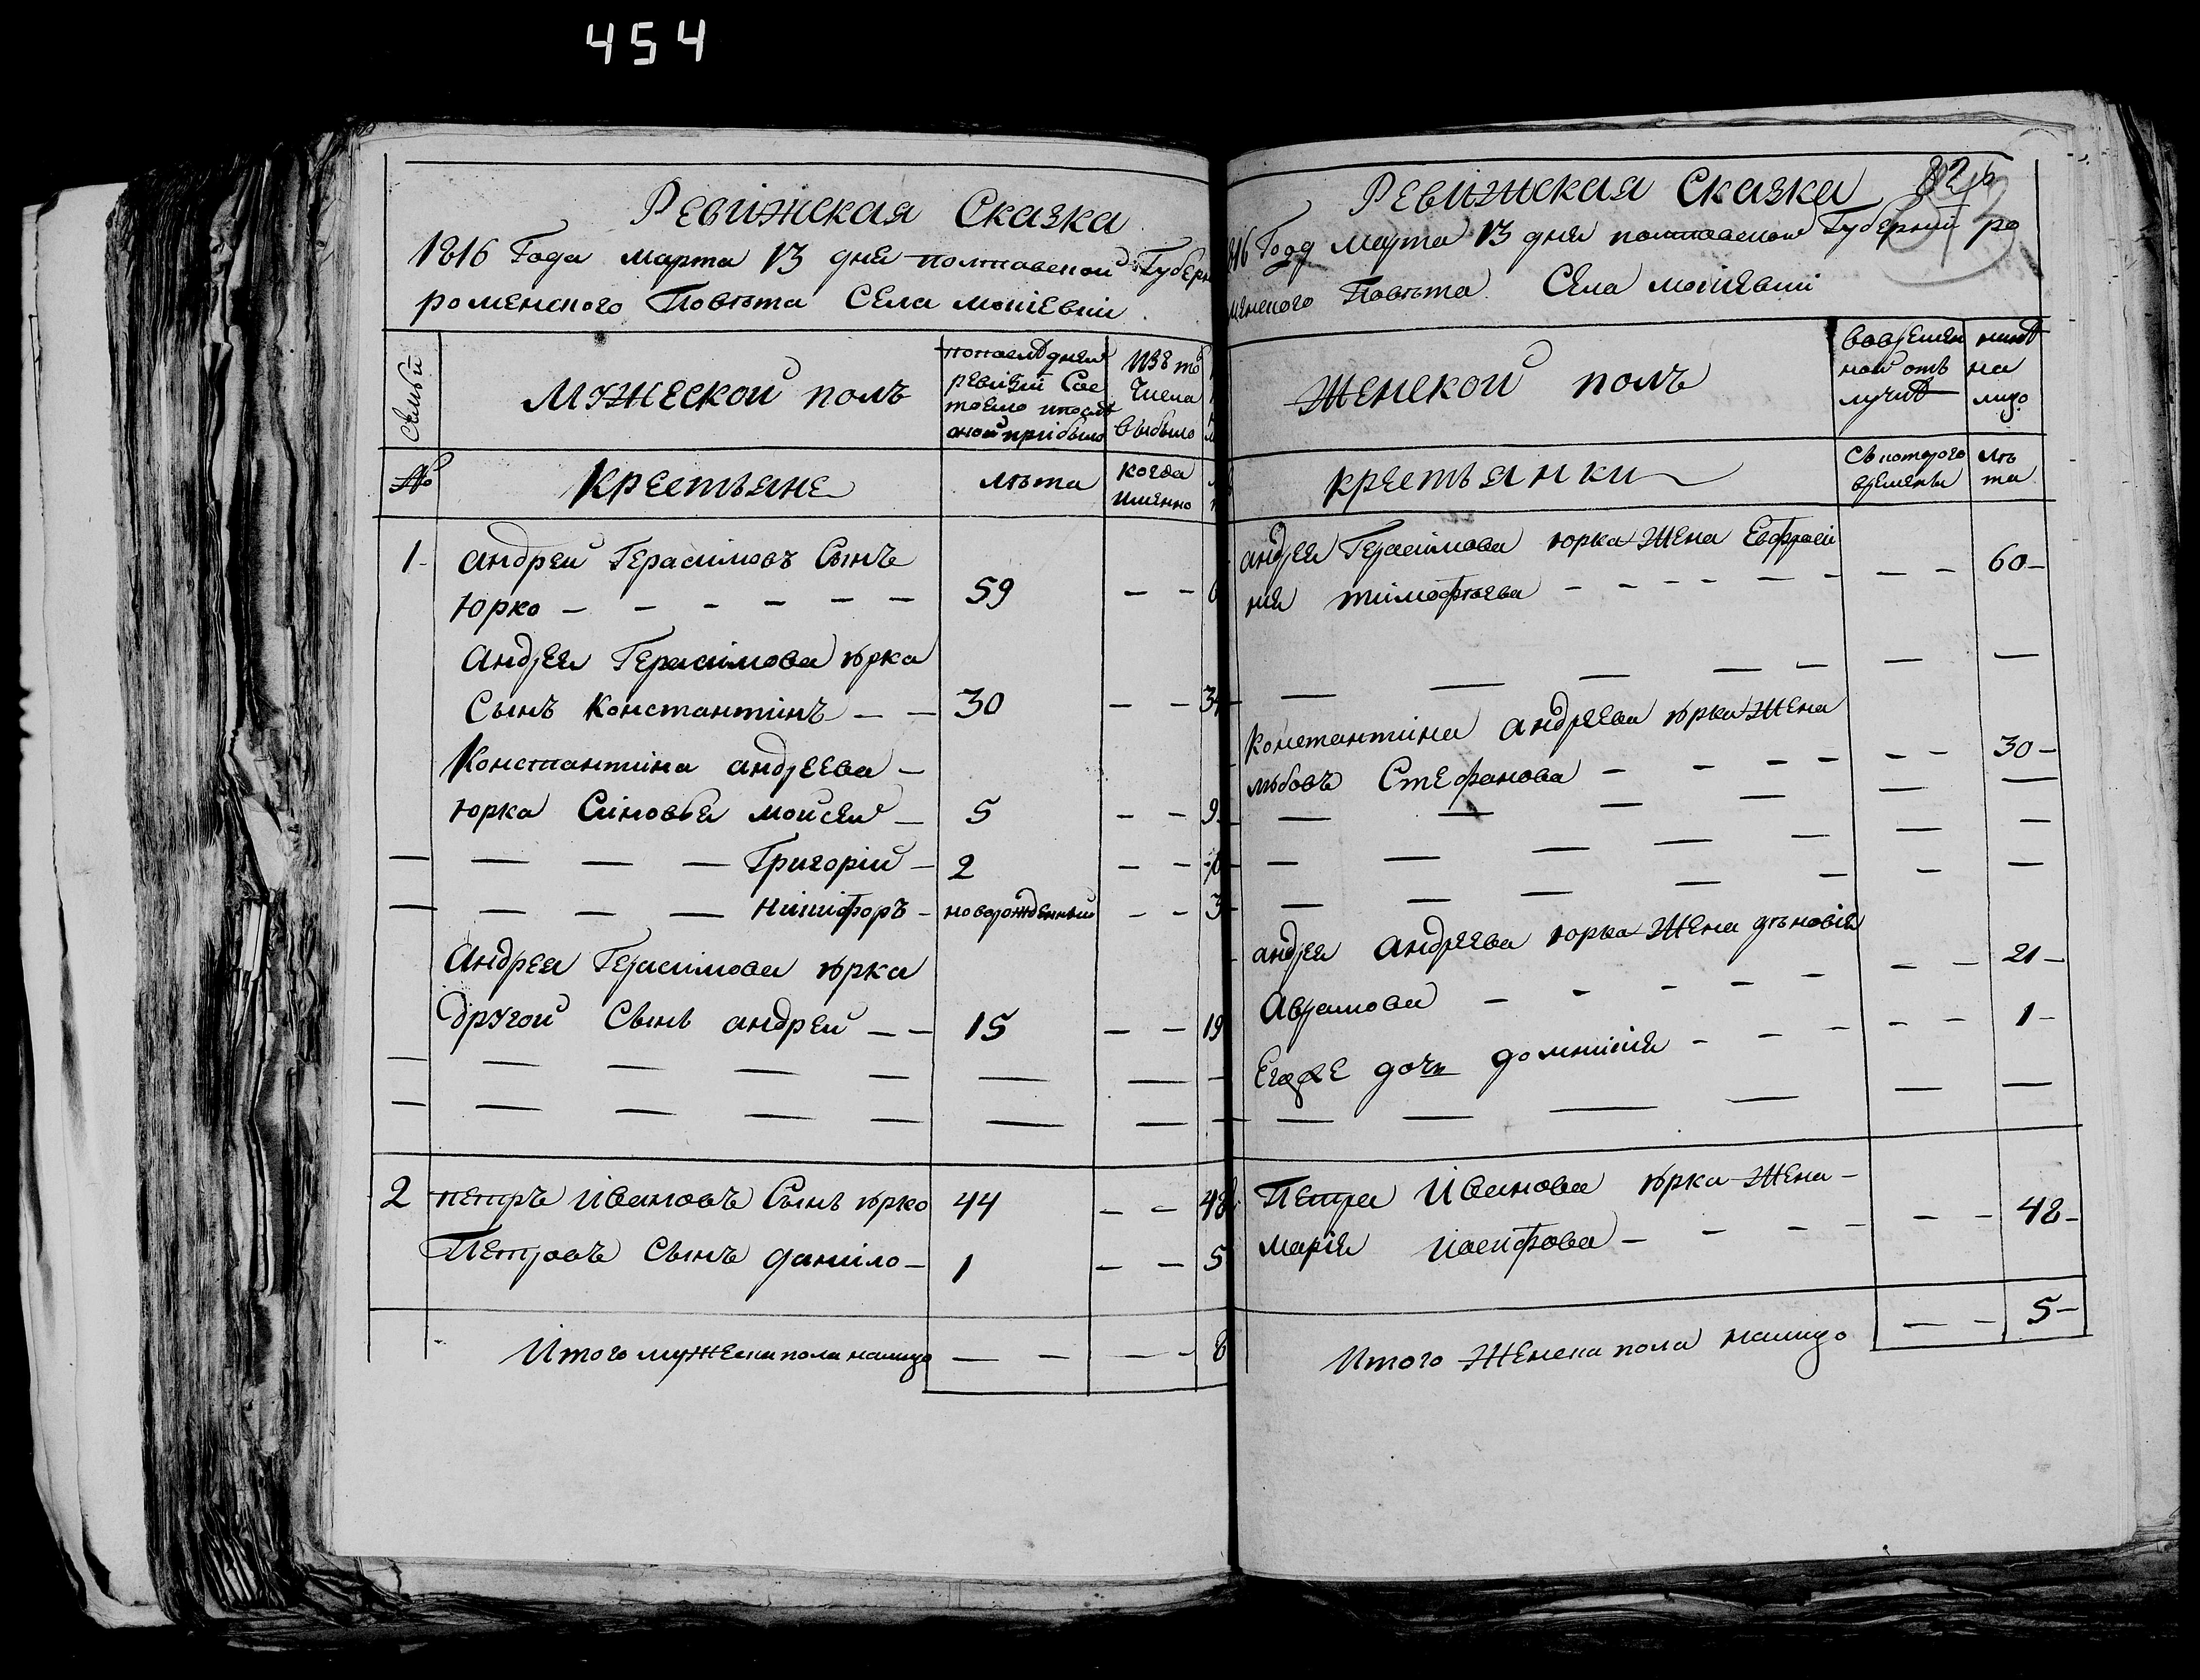 454
Ревижская Сказка
1816 Года марта 13 дня полтавской Губерн
роменского Повѣта Села
Семьи
Мужеской полъ
по последней
ревизии Сос
тояло и после
оной прибыло
Изъ то
числа
выбыло
№
крестьяне
лѣта
когда
именно
1 Андреи Герасимовъ Сынъ
Юрко 59
Андрея Герасимова юрка
Сынъ Константинъ 30 34
Константина андреева
юрка Синовья моисеи 5 9
Григорій 2
Никифоръ новорожденный 3
Андрея Герасимова юрка
другой Сынъ андреи 15 19
2 петръ Ивановъ Сынъ юрко 44 48
Петровъ Сынъ данило 1 5
Итого мужеска пола налицо 8
826
Ревижская Сказка
816 Года Марта 13 дня полтавской Губерніи ро
менского Повѣта Села
Женской полъ
во времян
ной отъ
лучке
ныне
на
лицо
крестьянки
Съ которого
времяни
лѣ
та
андрея Герасимова юрка Жена Евфроси
ния тимофѣева 60
Константина андреева юрка Жена
любовъ Стефанова 30
андрея андреева юрка Жена
Аврамова 21
Егоже дочь домникия 1
Петра Иванова юрка Жена
марія иосифова 48
Итого Женска пола налицо 5